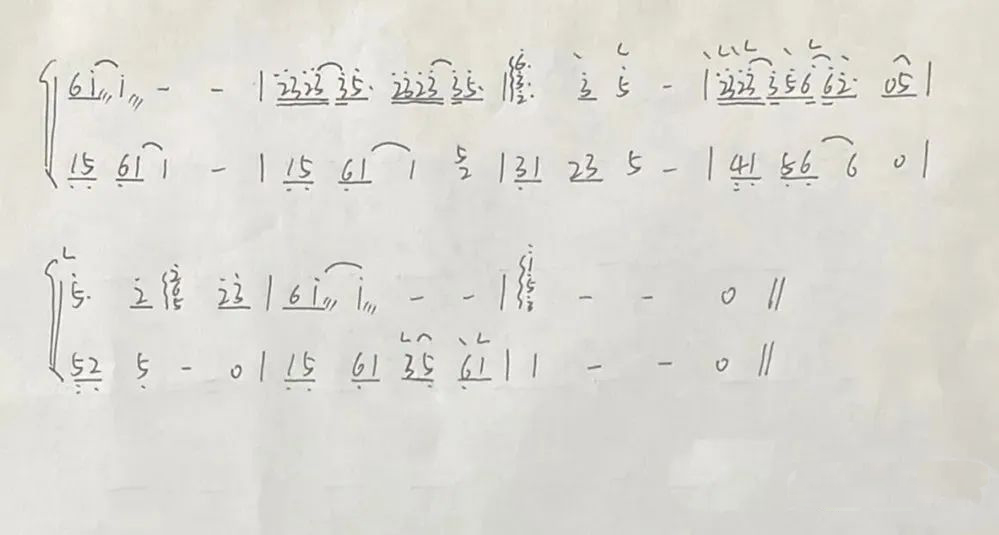 6i i - - | 2323 35· 2323 35· | 632· 3 5 - | 2323 356 62· 05 |
15 61 1 - | 15 61 1 52 | 31 23 5 - | 41 56 6 0 |
5· 2 265 23 | 6i i - - | i53 - - 0 ‖
52 5 - 0 | 15 61 35 61 | 1 - - 0 ‖